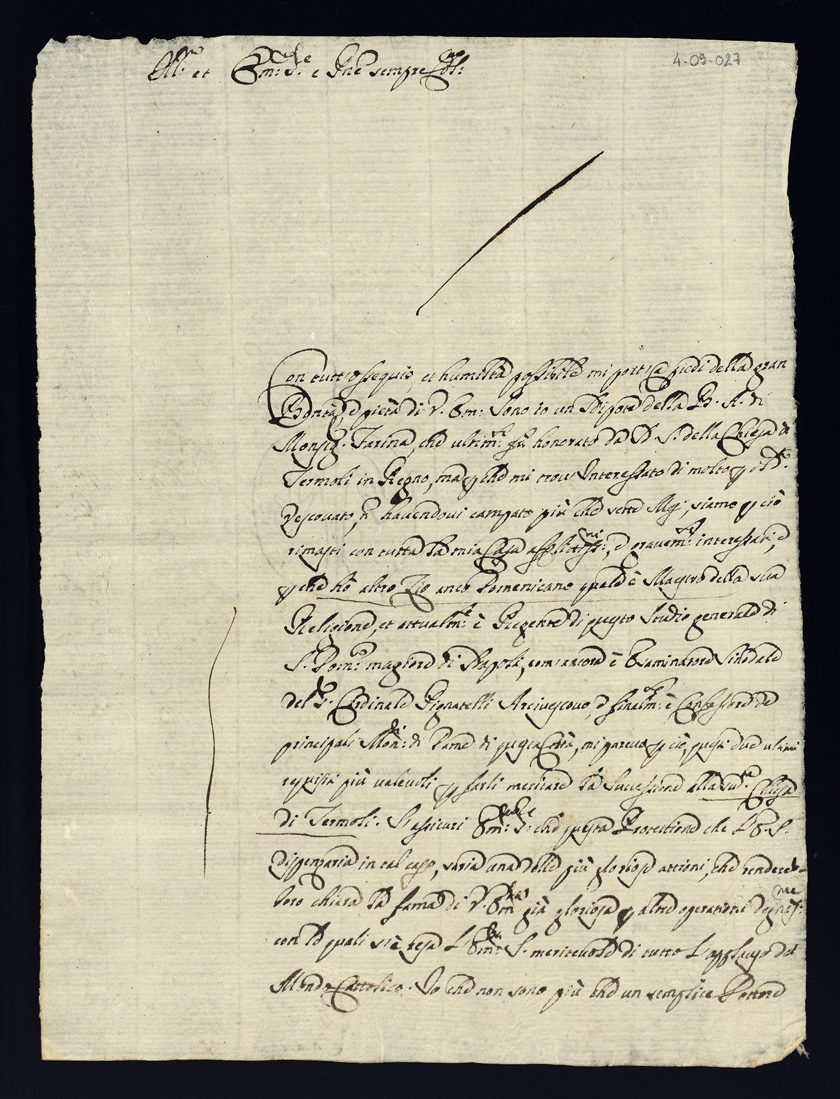 Ill.mo et Em.mo S.re e Pne sempre Col.mo
4-09-027
Con tutt'ossequio, et humiltà possibile mi porto a piedi della gran
Bontà, e pietà di V. Em: Sono io un Nipote della
Monsig. Farina, che ultim.te fu honorato da N. S. della Chiesa di
Termoli in Regno, ma perche mi trovo Interessato di molto per d.o
Vescovato, non havendovi campato più che sette Mesi, siamo per ciò
rimasti con tutta la mia Casa afflittiss.mi, e gravem.te interessati, e
perche hò altro Zio anco Domenicano quale è Maestro della sua
Religione, et attualm.te è Regente di questo Studio generale di
S. Dom.co magiore di Napoli, come ancora è Esaminatore Sinodale
del S. Cardinale Pignatelli Arcivescovo, e finalm.te è Confessore de
principali Mon.rj di Dame di questa Città, mi parevo per ciò, questi due ultimi
requisiti più valevoli per farli meritare la Successione alla sud.ta Chiesa
di Termoli. S'assicuri che questa Protettione che V. E. S.
dispenzaria in tal caso, saria una delle più gloriose attioni, che rendereb-
bero chiara la fama di V. Em.za già gloriosa per altre operationi degniss.me
con le quali si è resa V. Em.za S. meritevole di tutto l'applauso del
Mondo Cattolico. Io che non sono più che un semplice Dottore